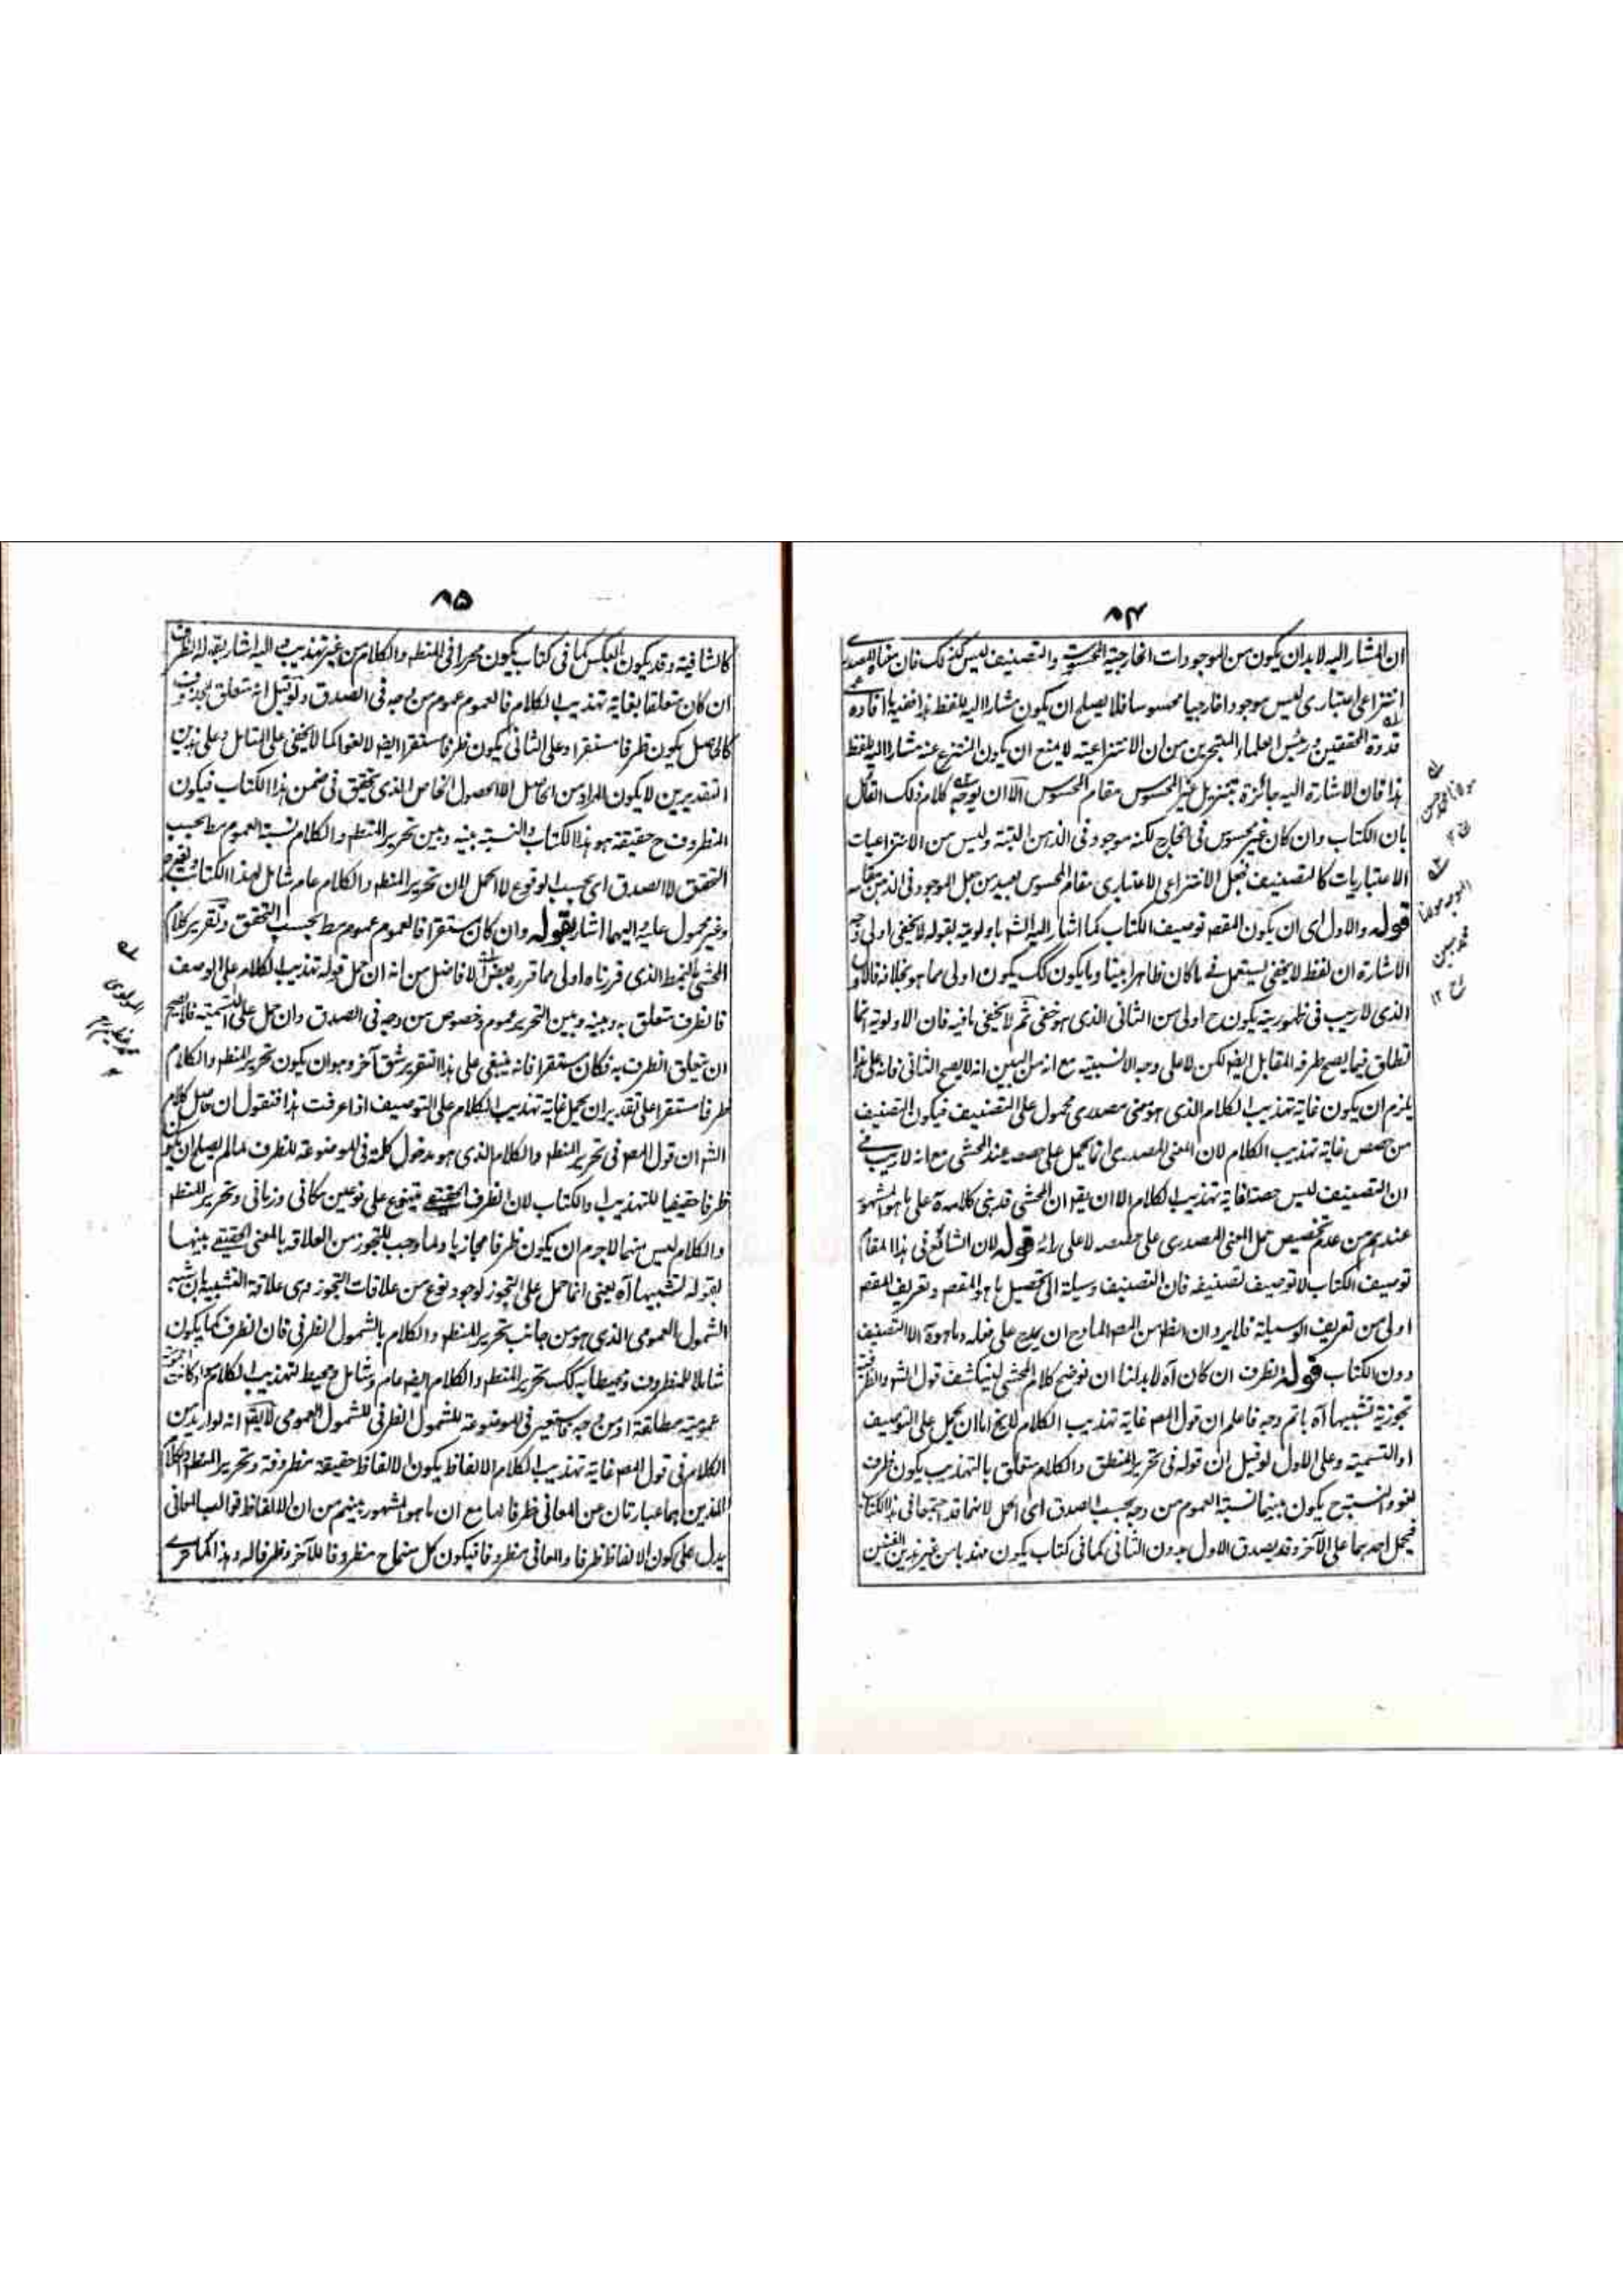 ٨٤
ان المشار اليه لابد ان يكون من الموجودات الخارجية المحسوسة والتصنيف ليس كذلك فان معناه المصدرى
انتزاعى اعتبارى ليس موجودا خارجيا محسوسا فلا يصلح ان يكون مشارا اليه بلفظ هذا ففيه ما افاده
قدوة المحققين ورئيس العلماء المتبحرين من ان الانتزاعية لا يمنع ان يكون المنتزع عنه مشارا اليه بلفظ
هذا فان الاشارة اليه جائزة بتنزيل غير المحسوس مقام المحسوس الا ان يوجه كلام ذلك القائل
بان الكتاب وان كان غير محسوس فى الخارج لكنه موجود فى الذهن البتة وليس من الانتزاعيات
الاعتباريات كالتصنيف فجعل الانتزاعى الاعتبارى مقام المحسوس بعيد من جعل الموجود فى الذهن مقامه
قوله والاول اى ان يكون المقصود توصيف الكتاب كما اشار اليه الشه باولويته بقوله لا يخفى اولى وجه
الاشارة ان لفظ لا يخفى يستعمل فى ما كان ظاهرا بينا وما يكون كك يكون اولى مما هو بخلافه فالاول
الذى لا ريب فى ظهوريته يكون ح اولى من الثانى الذى هو خفى ثم لا يخفى ما فيه فان الاولوية انما
تطلق فيما يصح طرفه المقابل ايضا لكن لا على وجه الانسبية مع انه من البين انه لا يصح الثانى فانه على هذا
يلزم ان يكون غاية تهذيب الكلام الذى هو معنى مصدرى محمول على التصنيف فيكون التصنيف
من حصص غاية تهذيب الكلام لان المعنى المصدرى انما يحمل على حصصه عند المحشى مع انه لا ريب فى
ان التصنيف ليس حصة لغاية تهذيب الكلام الا ان يقه ان المحشى قد بنى كلامه على ما هو المشهور
عندهم من عدم تخصيص حمل المعنى المصدرى على حصصه لا على رائه قوله لان الشائع فى هذا المقام
توصيف الكتاب لا توصيف تصنيفه فان التصنيف وسيلة الى تحصيل ما هو المقصه وتعريف المقصه
اولى من تعريف الوسيلة فلا يرد ان الظه من المصه المادح ان يمدح على فعله وما هو الا التصنيف
دون الكتاب قوله الظرف ان كان آه لابد لنا ان نوضح كلام المحشى لينكشف قول الشه والظرفية
تجوزية تشبيها آه باتم وجه فاعلم ان قول المصه غاية تهذيب الكلام لايخ اما ان يحمل على التوصيف
او التسمية وعلى الاول لو قيل ان قوله فى تحرير المنطق والكلام متعلق بالتهذيب يكون ظرف
لغو والنسبة ح يكون بينهما نسبة العموم من وجه بحسب الصدق اى الحمل لانهما قد اجتمعا فى هذا الكتاب
فيحمل احدهما على الآخر وقد يصدق الاول بدون الثانى كما فى كتاب يكون مهذبا من غير هذين الفنين
مولانا
١٢
٨٥
كالشافية وقد يكون بالعكس كما فى كتاب يكون محررا فى المنطق والكلام من غير تهذيب واليه اشار بقوله الظرف
ان كان متعلقا بغاية تهذيب الكلام فالعموم عموم من وجه فى الصدق ولو قيل انه متعلق بمحذوف
كالحاصل يكون ظرفا مستقرا وعلى الثانى يكون ظرفا مستقرا ايضا لا لغوا كما لا يخفى على المتامل وعلى هذين
التقديرين لا يكون المراد من الحاصل الا الحصول الخاص الذى تحقق فى ضمن هذا الكتاب فيكون
المظروف ح حقيقة هو هذا الكتاب والنسبة بينه وبين تحرير المنطق والكلام نسبة العموم مط بحسب
التحقق لا الصدق اى بحسب الوقوع لا الحمل لان تحرير المنطق والكلام عام شامل لهذا الكتاب ولغيره
وغير محمول عليه واليهما اشار بقوله وان كان مستقرا فالعموم عموم مط بحسب التحقق وتقرير كلام
المحشى بالنمط الذى قررناه اولى مما قرره بعض الافاضل من انه ان حمل قوله تهذيب الكلام على الوصف
فالظرف متعلق به وبينه وبين التحرير عموم وخصوص من وجه فى الصدق وان حمل على التسمية فلا يصح
ان يتعلق الظرف به فكان مستقرا فانه ينبغى على هذا التقرير شق آخر وهو ان يكون تحرير المنطق والكلام
ظرفا مستقرا على تقدير ان يحمل غاية تهذيب الكلام على التوصيف اذا عرفت هذا فنقول ان حاصل كلام
الشه ان قول المصه فى تحرير المنطق والكلام الذى هو مدخول كلمة فى الموضوعة للظرف لما لم يصلح ان يكون
ظرفا حقيقيا للتهذيب والكتاب لان الظرف الحقيقى يتنوع على نوعين مكانى وزمانى وتحرير المنطق
والكلام ليس منهما لاجرم ان يكون ظرفا مجازيا ولما وجب للتجوز من العلاقة بالمعنى الحقيقى بينهما
بقوله تشبيها آه يعنى انما حمل على التجوز لوجود نوع من علاقات التجوز وهى علاقة التشبيه بان شبه
الشمول العمومى الذى هو من جانب تحرير المنطق والكلام بالشمول الظرفى فان الظرف كما يكون
شاملا للمظروف ومحيطا به كك تحرير المنطق والكلام ايضا عام وشامل ومحيط لتهذيب الكلام سواء كانت
عمومية مطلقة او من وجه فاستعير فى الموضوعة للشمول الظرفى للشمول العمومى لا يقه انه لو اريد من
الكلام فى قول المصه غاية تهذيب الكلام الالفاظ يكون الالفاظ حقيقة مظروفة وتحرير المنطق والكلام
الذين هما عبارتان عن المعانى ظرفا لها مع ان ما هو المشهور بينهم من ان الالفاظ قوالب المعانى
يدل على كون الالفاظ ظرفا والمعانى مظروفا فيكون كل منهما ح مظروفا للآخر وظرفا له وهذا كما ترى
المولوى